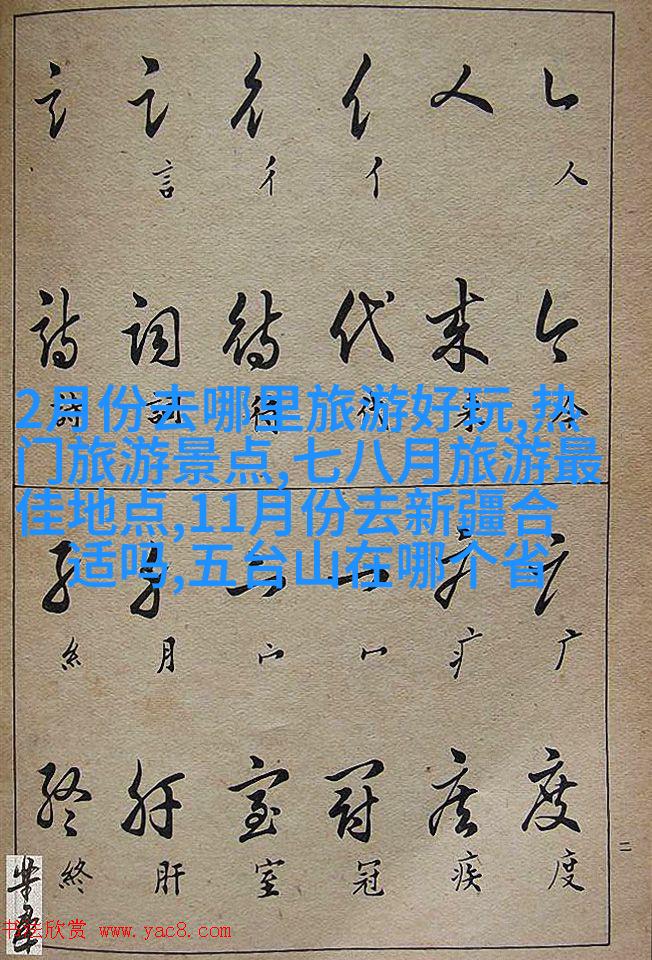 人 亻 彳 言
今 来 代 待 詞 詩
2月份去哪里旅游好玩,热
门旅游景点,七八月旅游最
佳地点,11月份去新疆合
适吗,五台山在哪个省
广 疒 冖 宀 月 糹
度 疾 冠 室 肝 終
度 疾 冠 室 肝 終
二
书法欣赏 www.yac8.com